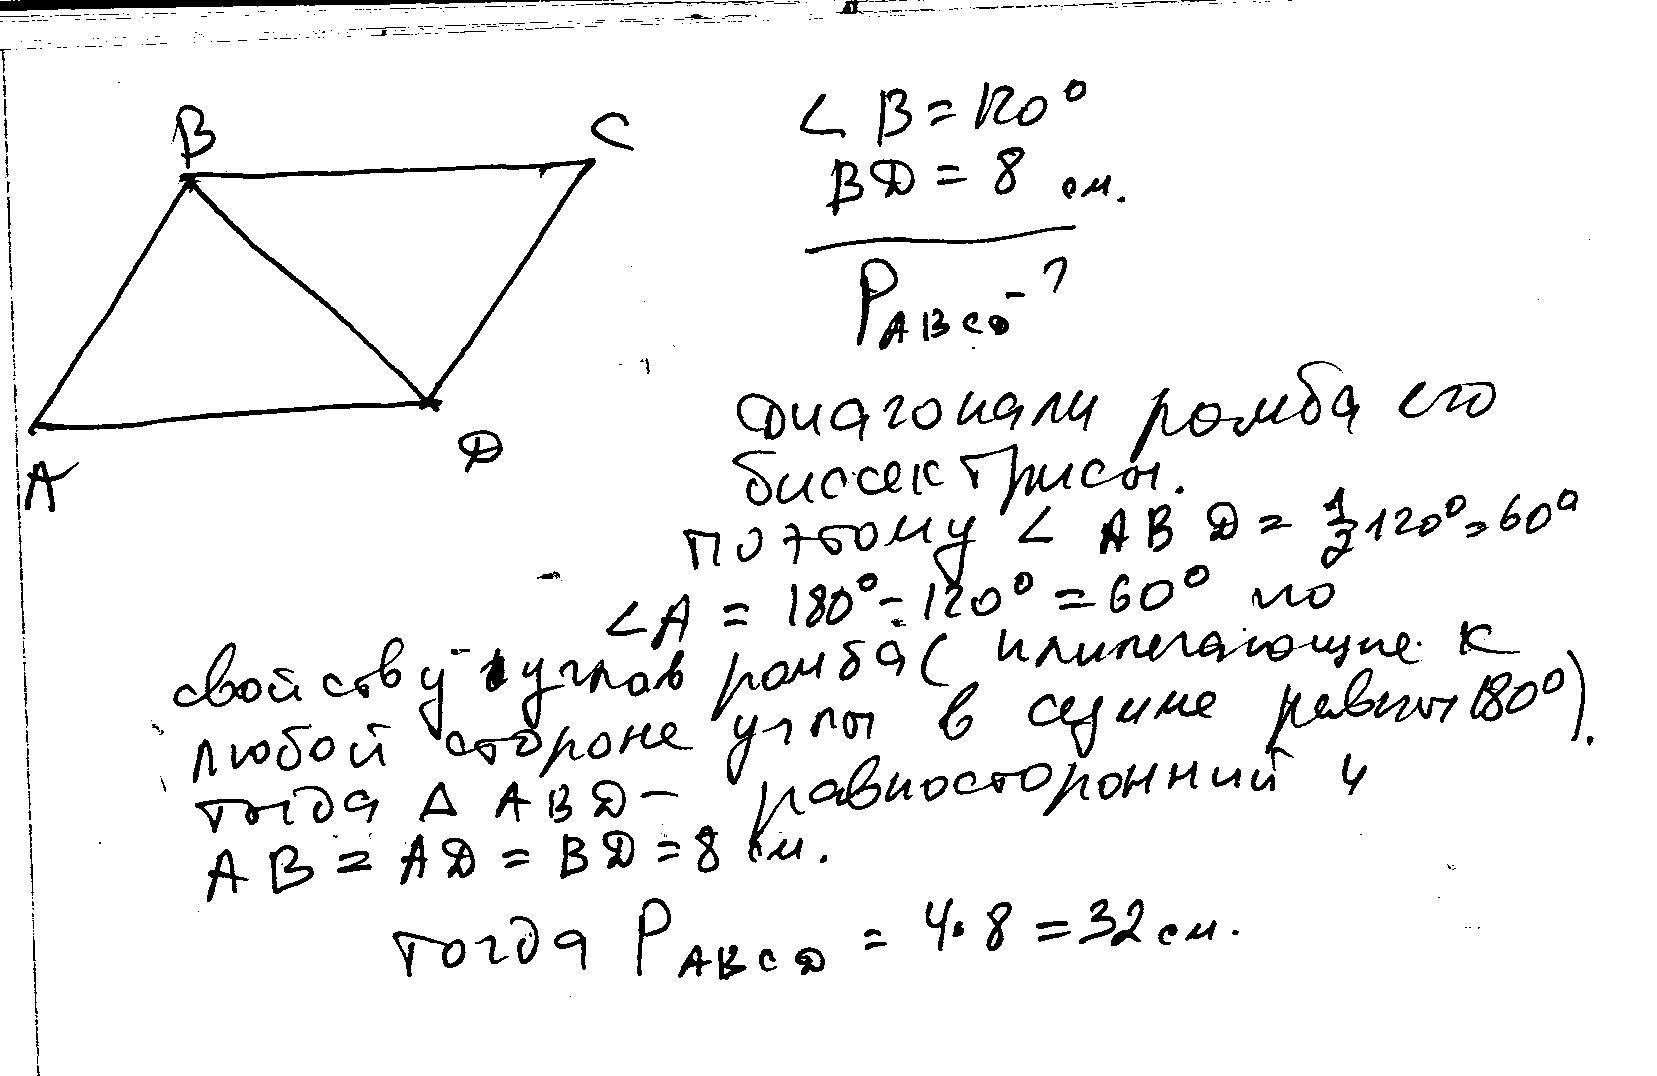 B
C
A
D
∠ B = 120°
BD = 8 см.
P ABCD - ?
Диагонали ромба его
биссектрисы.
поэтому ∠ ABD = 1/2 120° = 60°
∠A = 180° - 120° = 60° по
свойству углов ромба (прилегающие к
любой стороне углы в сумме равны 180°).
тогда Δ ABD - равносторонний и
AB = AD = BD = 8 см.
тогда P ABCD = 4·8 = 32 см.